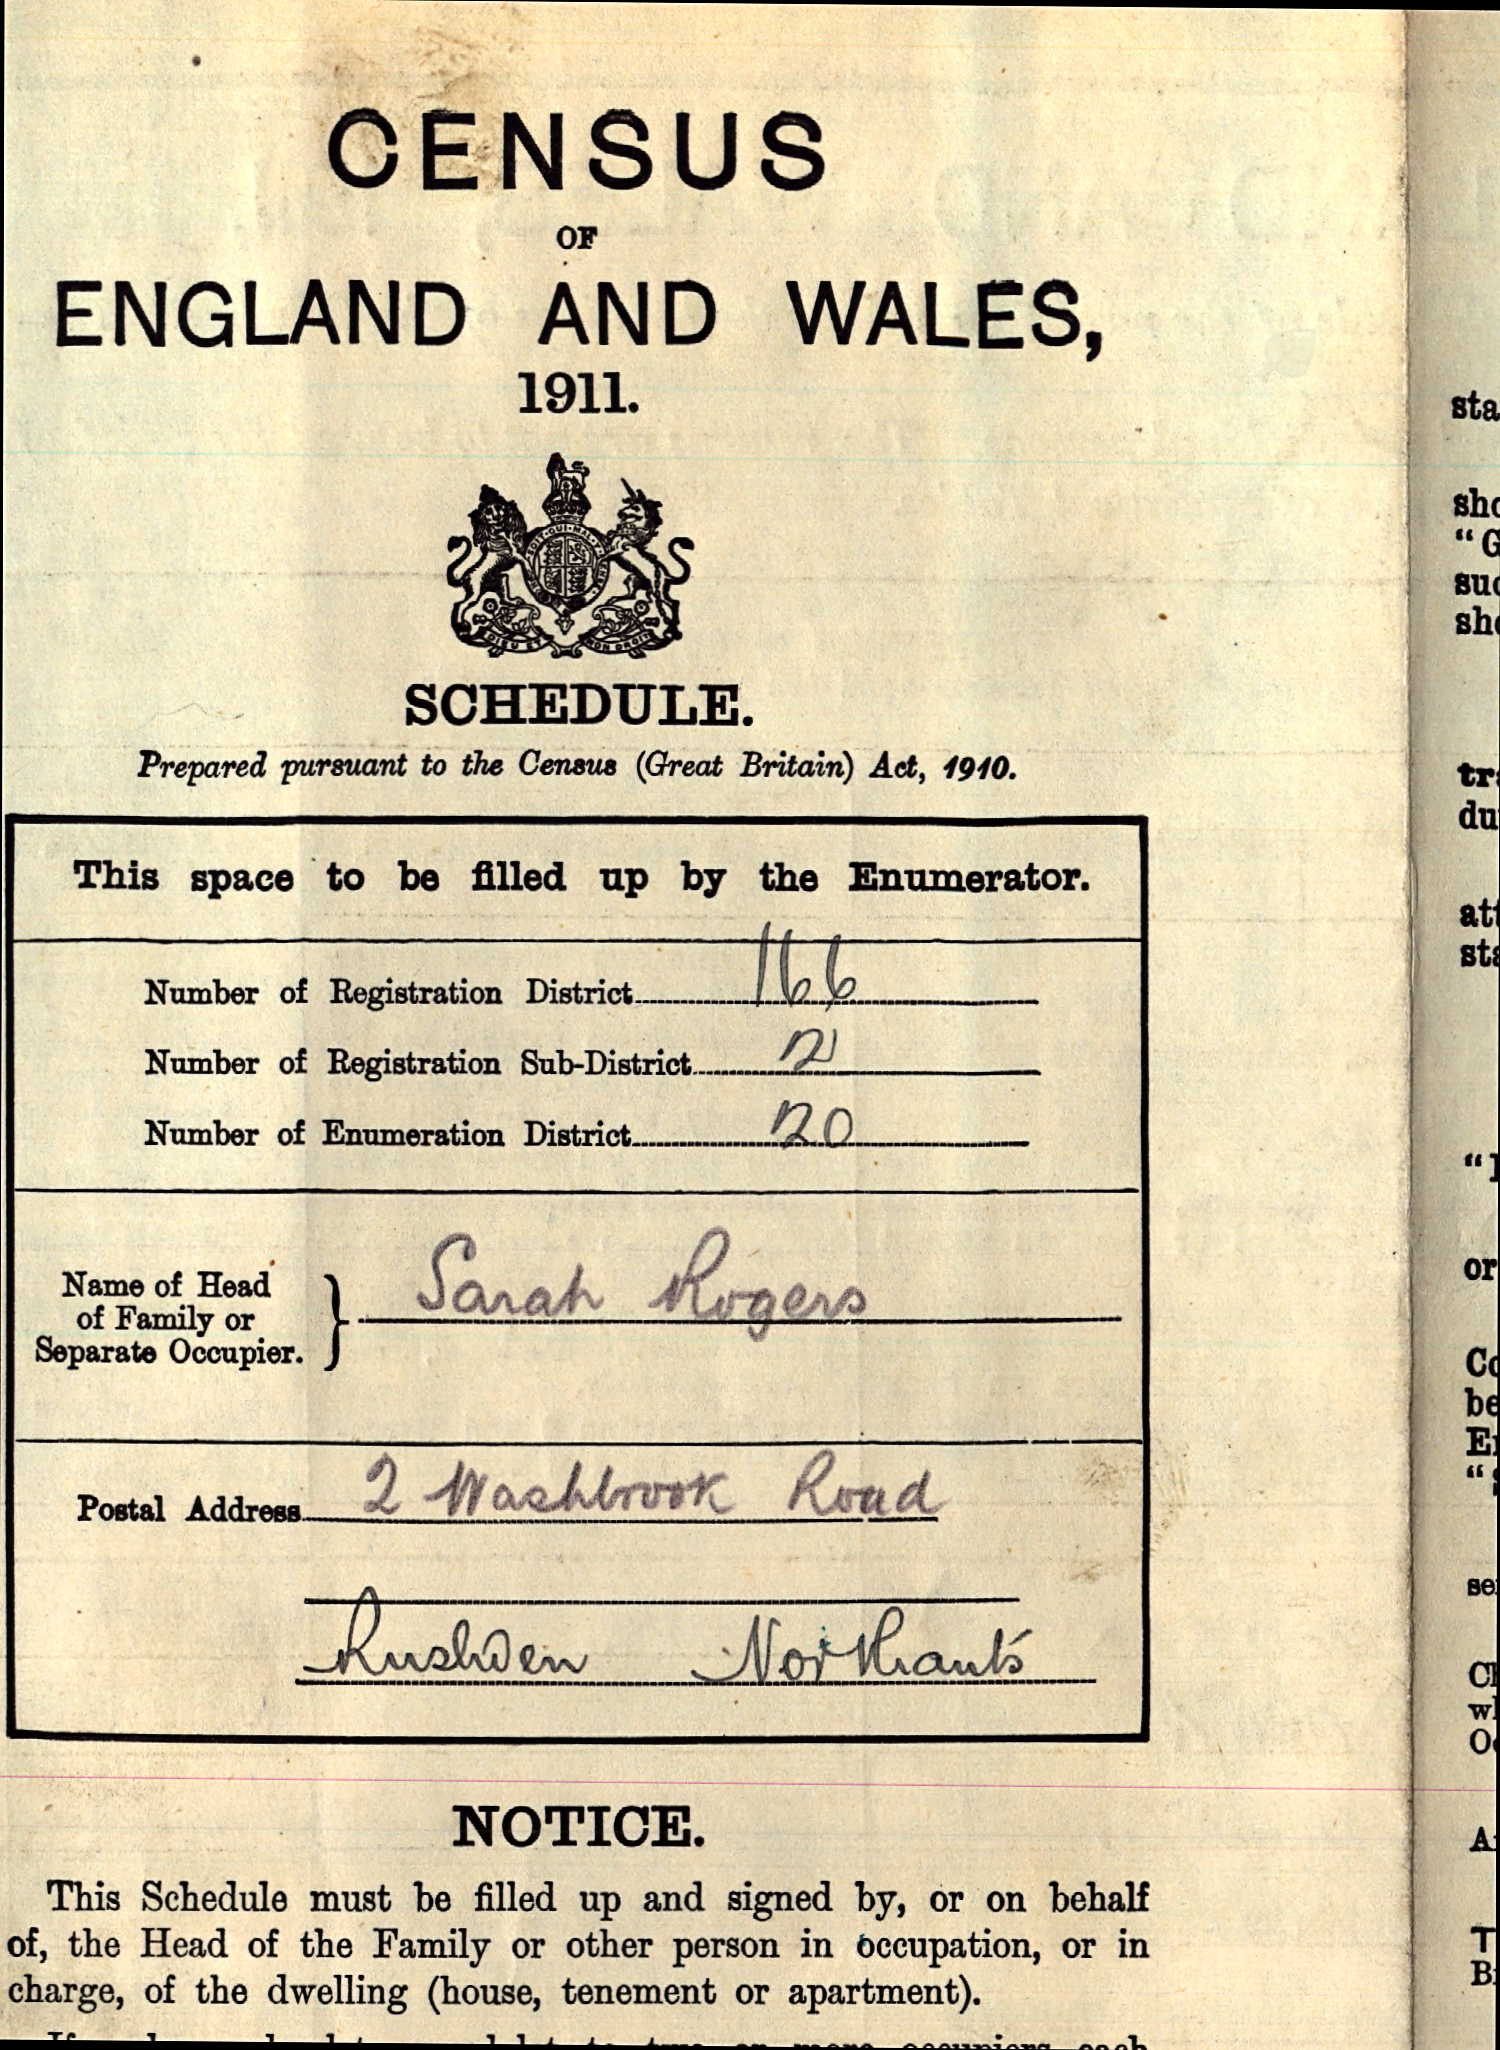 CENSUS
OF
ENGLAND AND WALES,
1911.
DIEU ET MON DROIT
SCHEDULE.
Prepared pursuant to the Census (Great Britain) Act, 1910.
This space to be filled up by the Enumerator.
Number of Registration District 166
Number of Registration Sub-District 2
Number of Enumeration District 20
Name of Head
of Family or
Separate Occupier. } Sarah Rogers
Postal Address 2 Washbrook Road
Rushden Northants
NOTICE.
This Schedule must be filled up and signed by, or on behalf
of, the Head of the Family or other person in occupation, or in
charge, of the dwelling (house, tenement or apartment).